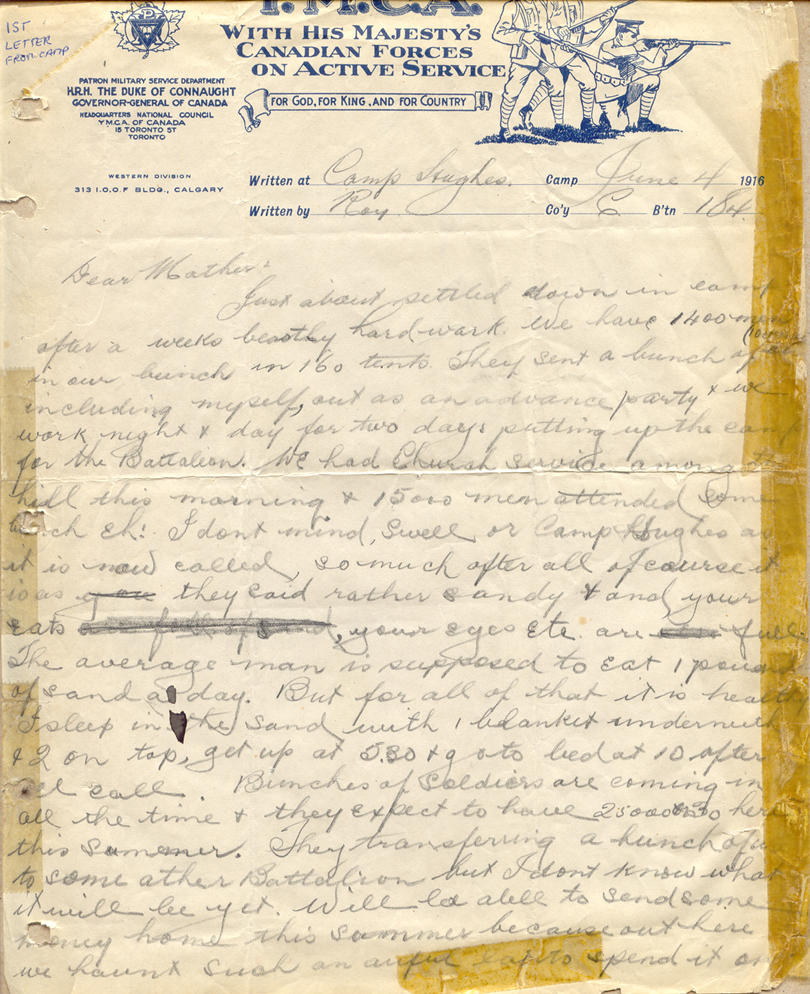 1ST
LETTER
FROM CAMP
Y.M.C.A.
WITH HIS MAJESTY'S
CANADIAN FORCES
ON ACTIVE SERVICE
FOR GOD, FOR KING, AND FOR COUNTRY
PATRON MILITARY SERVICE DEPARTMENT
H.R.H. THE DUKE OF CONNAUGHT
GOVERNOR-GENERAL OF CANADA
HEADQUARTERS NATIONAL COUNCIL
Y.M.C.A. OF CANADA
15 TORONTO ST
TORONTO
WESTERN DIVISION
313 I.O.O.F BLDG., CALGARY
Written at Camp Hughes. Camp June 4 1916
Written by Roy Co'y C B'tn 184
Dear Mother:
Just about settled down in camp
after a weeks beastly hard work. We have 1400 men
in our bunch in 160 tents. They sent a bunch of
including myself, out as an advance party & we
work night & day for two days putting up the camp
for the Battalion. We had Church service among the
hill this morning & 15000 men attended some
bunch eh! I dont mind, Swell or Camp Hughes as
it is now called, so much after all of course it
is as you they said rather sandy & and your
eats full of sand, your eyes etc. are full
The average man is supposed to eat 1 pound
of sand a day. But for all of that it is healthy
I sleep in the sand with 1 blanket underneath
& 2 on top, get up at 530 & go to bed at 10 after
call. Bunches of soldiers are coming in
all the time & they expect to have 25000 here
this summer. They transferring a bunch of us
to some other Battalion but I dont know what
it will be yet. Will be abell to send some
money home this summer because out here
we haunt such an awful to spend it on